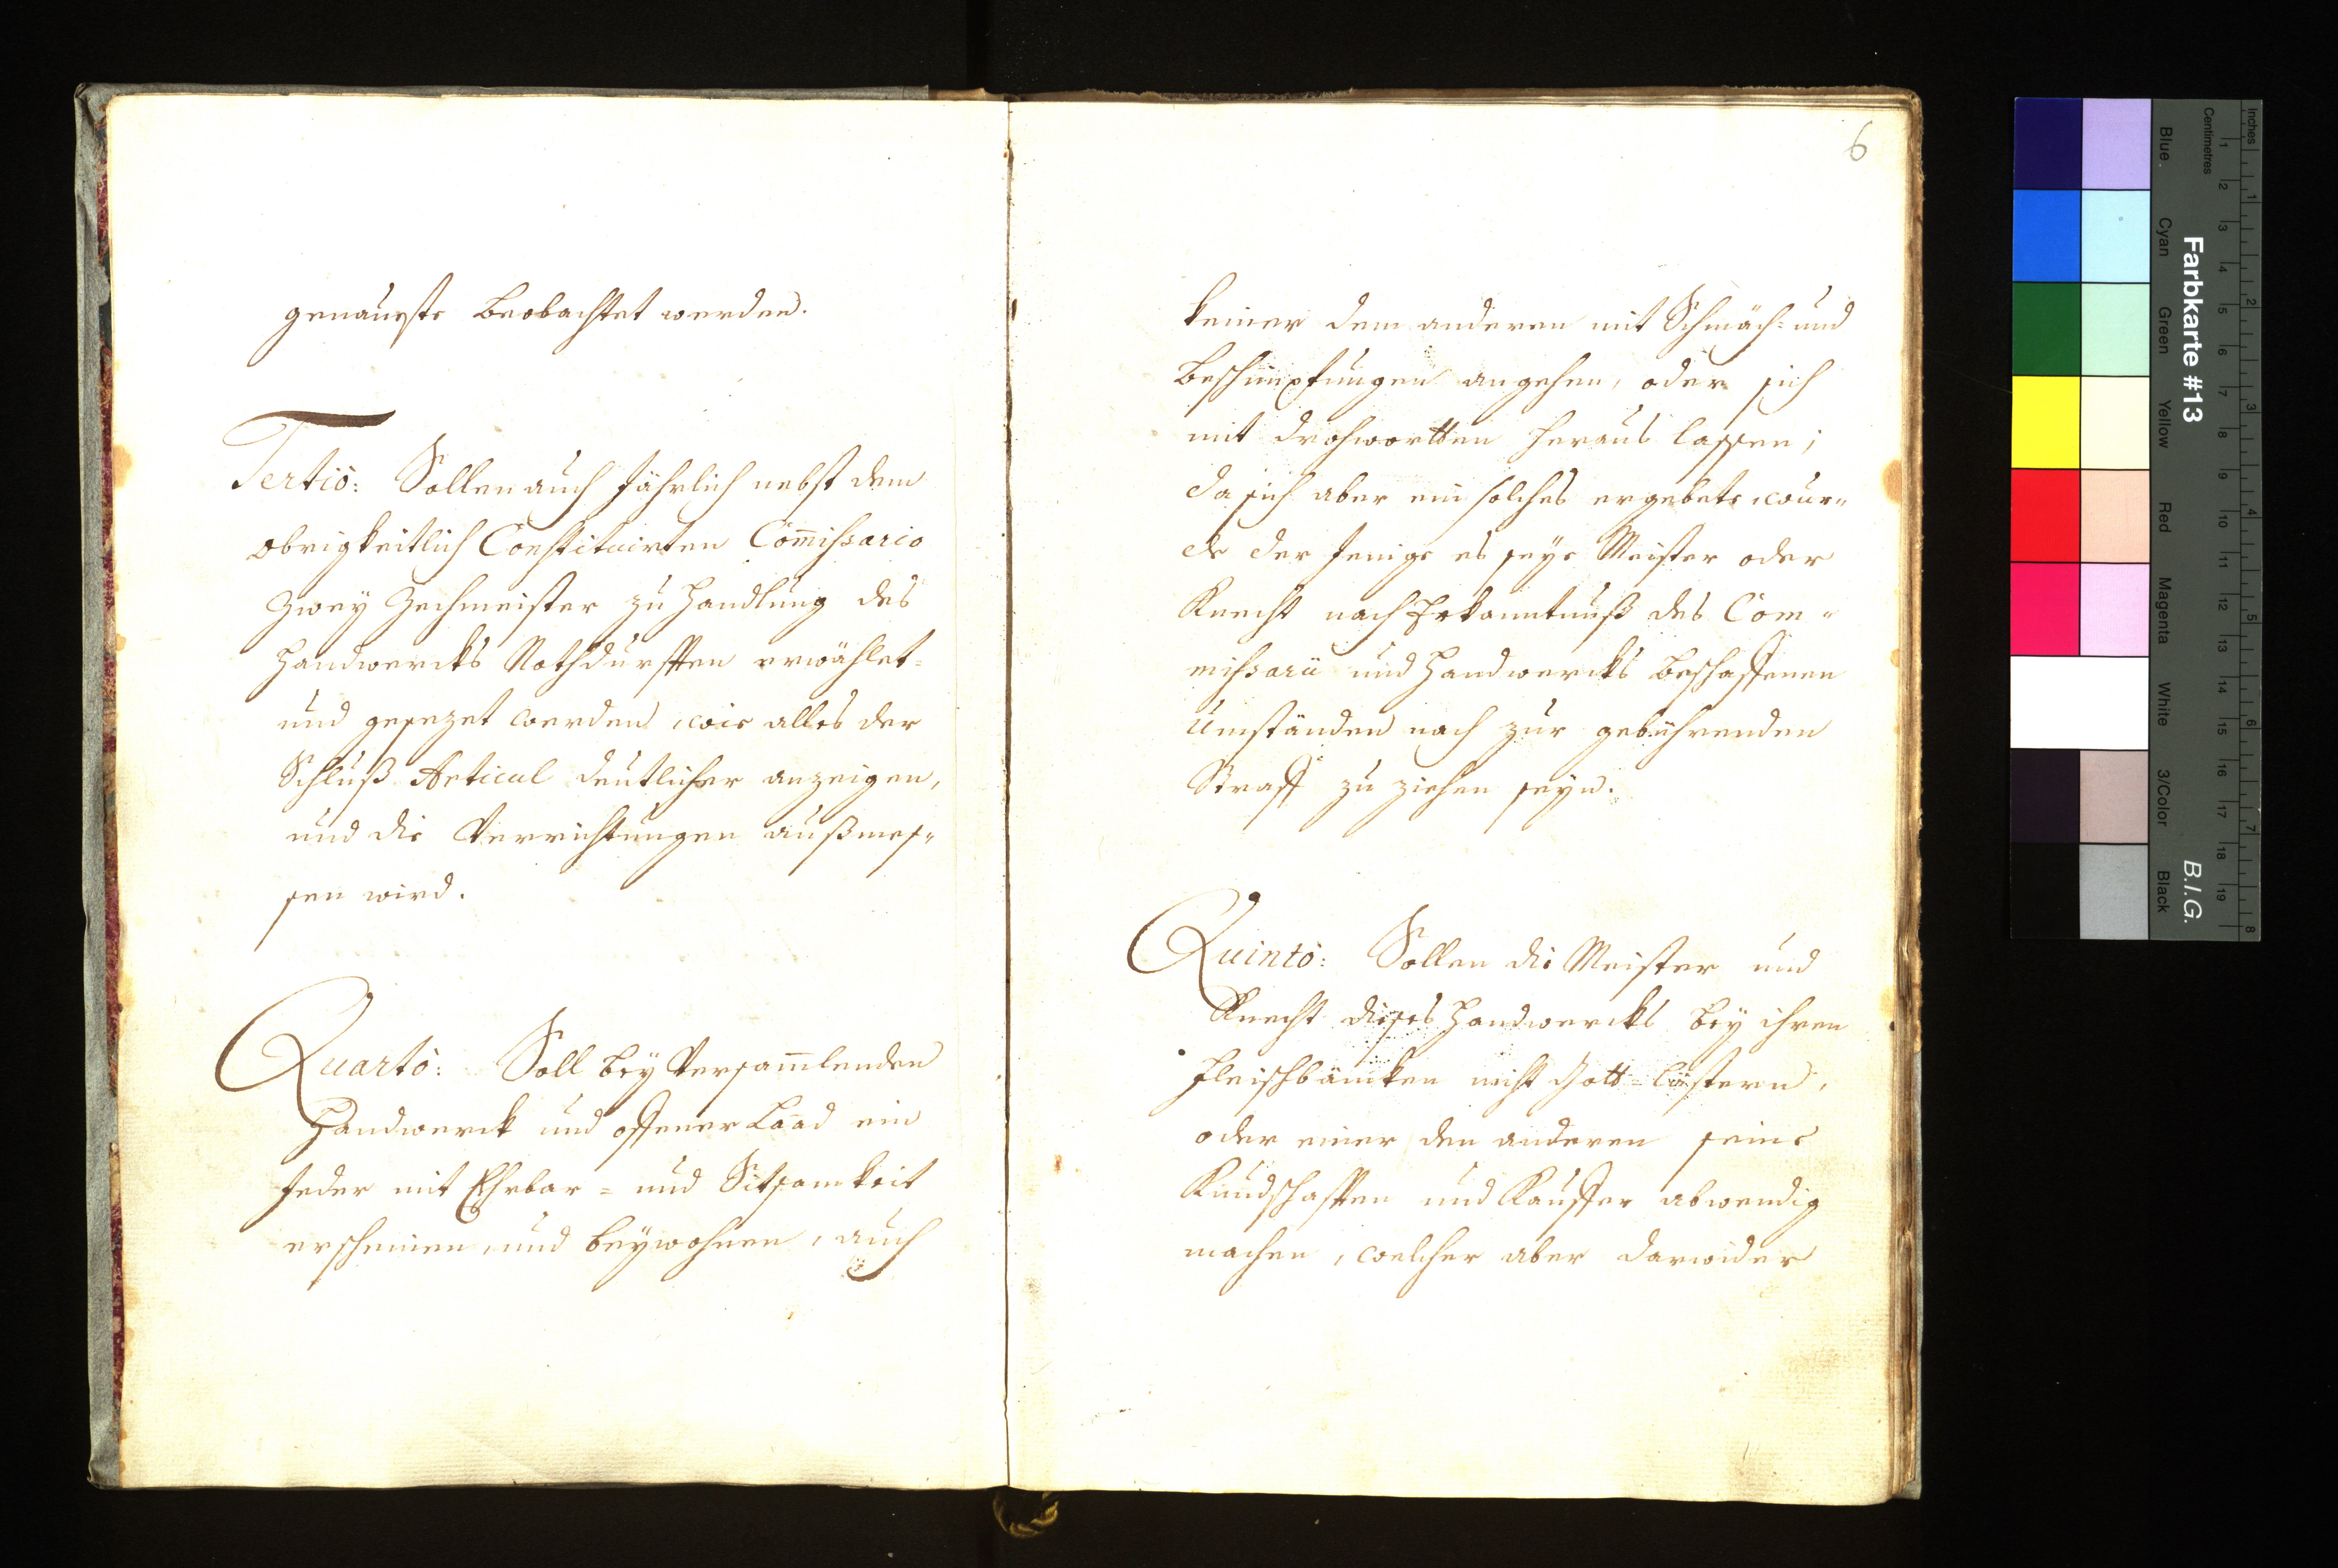 genaueste beobachtet werden.
Tertiò: Sollen auch jährlich nebst dem
obrigkeitlich Constituirten Com̄ißario
zwey Zechmeister zu Handlung des
Handwercks Nothdurfften erwählet=
und gesezet werden, wie alles der
Schluß Articul deutlicher anzeigen,
und die Verrichtungen außmes„
sen wird.
Quartò: Soll bey Versam̄lenden
Handwerck und offener Laad ein
jeder mit Ehrbar= und Sitsamkeit
erscheinen, und beywohnen, auch
6
keiner dem anderen mit Schmäch= und
Beschimpfungen angehen, oder sich
mit drohwortten heraus lassen;
da sich aber ein solches ergebete, wur„
de der jenige es seye Meister oder
Knecht nach Erkanntnuß des Com„
mißarii und Handwercks beschaffenen
Umständen nach zur gebührenden
Straff zu ziehen seyn.
Quintò: Sollen die Meister und
Knecht dieses Handwercks bey ihren
Fleischbäncken nicht Gott=lästern,
oder einer den anderen seine
Kundschafften und Kauffer abwendig
machen, welcher aber darwider
Inches
Centimetres
Farbkarte #13
B.I.G.
Blue
Cyan
Green
Yellow
Red
Magenta
White
3/Color
Black
1 2 3 4 5 6 7 8 9 10 11 12 13 14 15 16 17 18 19
1 2 3 4 5 6 7 8